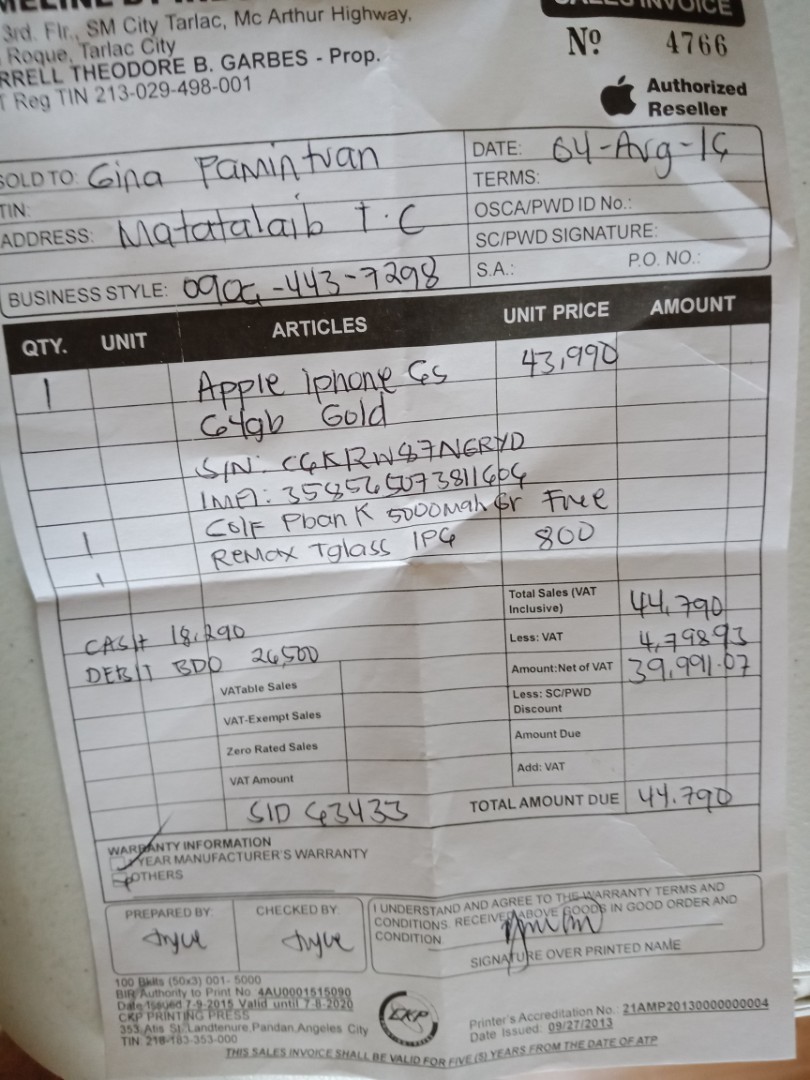 SALES INVOICE
3rd. Flr., SM City Tarlac, Mc Arthur Highway,
Roque, Tarlac City
RRELL THEODORE B. GARBES - Prop.
T Reg TIN 213-029-498-001
Nº 4766
Authorized
Reseller
SOLD TO: Gina Pamintuan
DATE: 04-Aug-16
TIN:
TERMS:
ADDRESS: Matatalaib T.C
OSCA/PWD ID No.:
SC/PWD SIGNATURE:
BUSINESS STYLE: 0906-443-7298
S.A.: P.O. NO.:
QTY. UNIT ARTICLES UNIT PRICE AMOUNT
1 Apple Iphone 6s 43,990
64gb Gold
S/N: C6KRW87NGRYD
IMEI: 358565073811606
1 Colf Pbank 5000mah Gr Free
1 Remax Tglass IP6 800
Total Sales (VAT Inclusive) 44,790
CASH 18,290
Less: VAT 4,798.93
DEBIT BDO 26,500
Amount:Net of VAT 39,991.07
VATable Sales
Less: SC/PWD Discount
VAT-Exempt Sales
Amount Due
Zero Rated Sales
Add: VAT
VAT Amount
SID 63433
TOTAL AMOUNT DUE 44.790
WARRANTY INFORMATION
YEAR MANUFACTURER'S WARRANTY
OTHERS
PREPARED BY: CHECKED BY:
I UNDERSTAND AND AGREE TO THE WARRANTY TERMS AND
CONDITIONS. RECEIVED ABOVE GOODS IN GOOD ORDER AND
CONDITION
SIGNATURE OVER PRINTED NAME
100 Bklts (50x3) 001- 5000
BIR Authority to Print No. 4AU0001515090
Date Issued 7-9-2015 Valid until 7-8-2020
CKP PRINTING PRESS
353 Atis St. Landtenure, Pandan, Angeles City
TIN: 218-183-353-000
CKP
Printer's Accreditation No.: 21AMP20130000000004
Date Issued: 09/27/2013
THIS SALES INVOICE SHALL BE VALID FOR FIVE (5) YEARS FROM THE DATE OF ATP